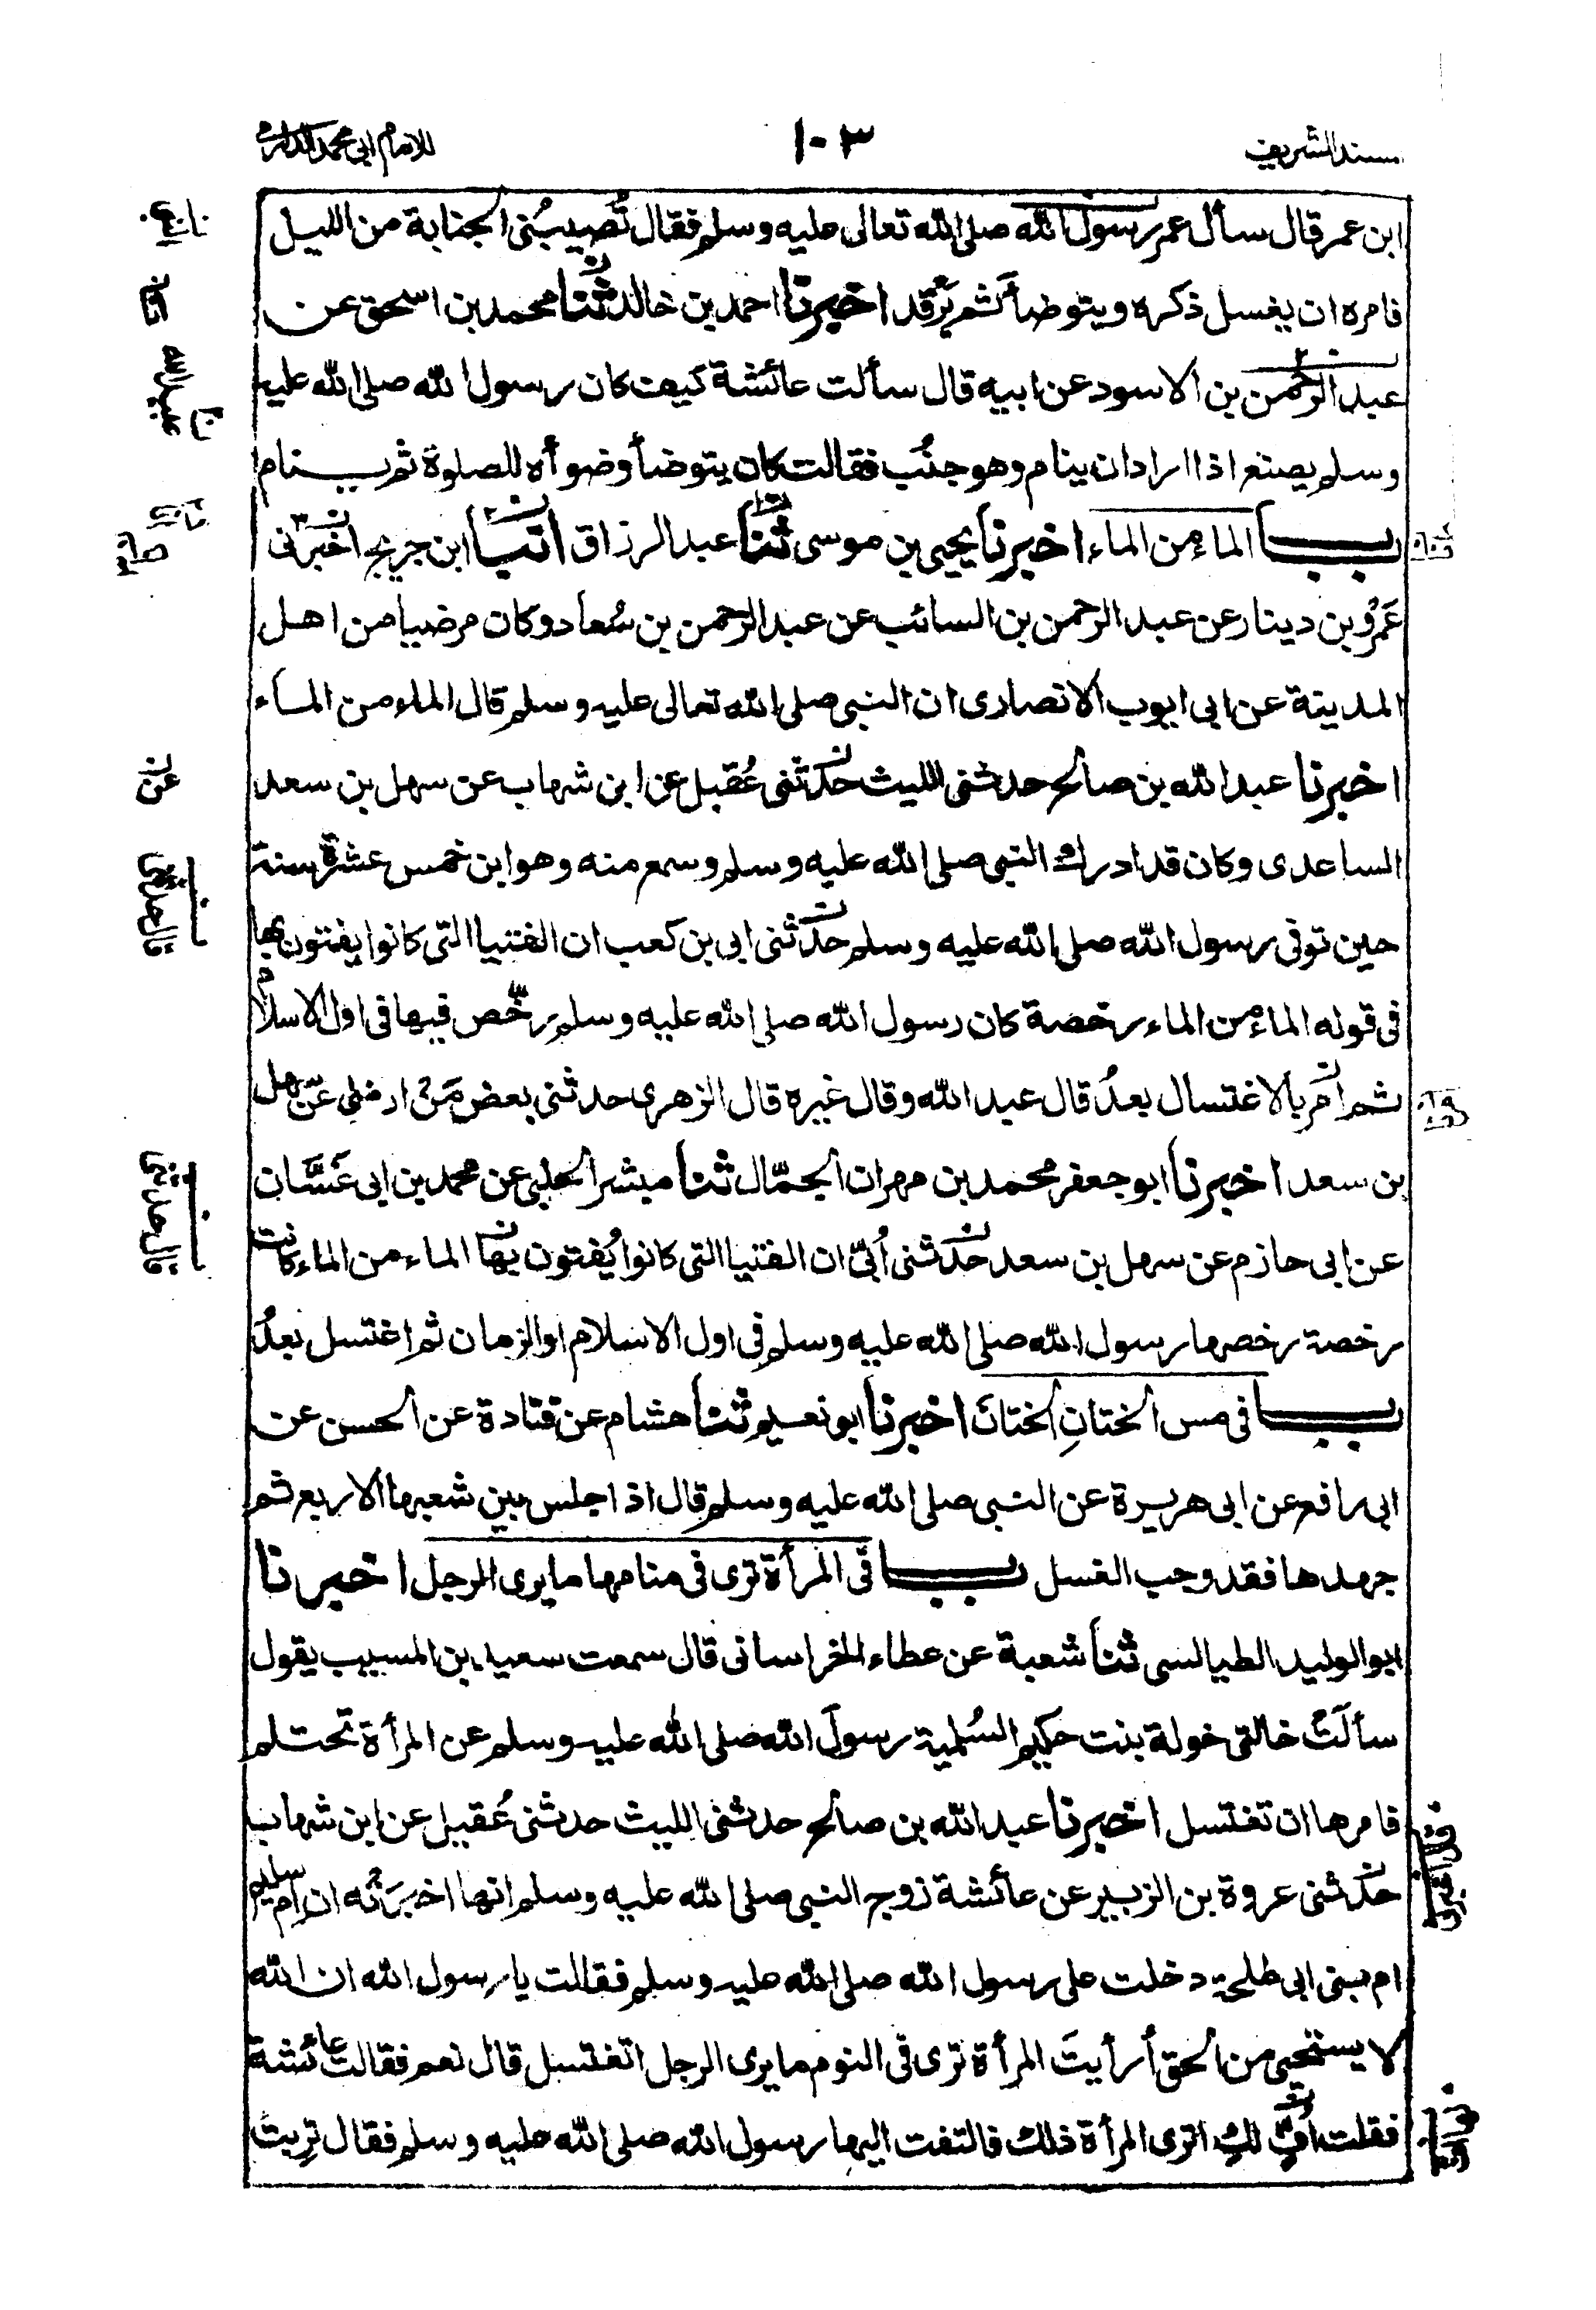 مسند الشريف
١٠٣
للامام ابي محمد الدارمى
ابن عمر قال سأل عمر رسول الله صلى الله تعالى عليه وسلم فقال تُصيبُنى الجنابة من الليل
فامره ان يغسل ذكره ويتوضأ ثم يَرقُد اخبرنا احمد بن خالد ثنا محمد بن اسحق عن
عبد الرحمن بن الاسود عن ابيه قال سألت عائشة كيف كان رسول الله صلى الله عليه
وسلم يصنع اذا اراد ان ينام وهو جنُب فقالت كان يتوضأ وضوأه للصلوة ثم ينام
باب الماء من الماء اخبرنا يحيى بن موسى ثنا عبد الرزاق انبأ ابن جريج اخبرنى
عَمرُو بن دينار عن عبد الرحمن بن السائب عن عبد الرحمن بن سُعاد وكان مرضيا من اهل
المدينة عن ابى ايوب الانصارى ان النبى صلى الله تعالى عليه وسلم قال الماء من الماء
اخبرنا عبد الله بن صالح حدثنى الليث حدثنى عُقيل عن ابن شهاب عن سهل بن سعد
الساعدى وكان قد ادرك النبى صلى الله عليه وسلم وسمع منه وهو ابن خمس عشرة سنة
حين توفى رسول الله صلى الله عليه وسلم حدثنى ابى بن كعب ان الفتيا التى كانوا يفتون بها
فى قوله الماء من الماء رخصة كان رسول الله صلى الله عليه وسلم رخّص فيها فى اول الاسلام
ثم امر بالاغتسال بعدُ قال عبد الله وقال غيره قال الزهرى حدثنى بعض مَن ارضى عن سهل
بن سعد اخبرنا ابو جعفر محمد بن مهران الجمّال ثنا مبشر الحلبى عن محمد بن ابى غَسَّان
عن ابى حازم عن سهل بن سعد حدثنى اُبىّ ان الفتيا التى كانوا يُفتون بها الماء من الماء كانت
رخصة رخصها رسول الله صلى الله عليه وسلم فى اول الاسلام او الزمان ثم اغتسل بعدُ
باب فى مس الختانِ الختانَ اخبرنا ابو نعيم ثنا هشام عن قتادة عن الحسن عن
ابى رافع عن ابى هريرة عن النبى صلى الله عليه وسلم قال اذا جلس بين شعبها الاربع ثم
جهدها فقد وجب الغسل باب فى المرأة ترى فى منامها ما يرى الرجل اخبرنا
ابو الوليد الطيالسى ثنا شعبة عن عطاء الخراسانى قال سمعت سعيد بن المسيب يقول
سألَتْ خالتى خولة بنت حكيم السُلمية رسولَ الله صلى الله عليه وسلم عن المرأة تحتلم
فامرها ان تغتسل اخبرنا عبد الله بن صالح حدثنى الليث حدثنى عُقيل عن ابن شهاب
حدثنى عروة بن الزبير عن عائشة زوج النبى صلى الله عليه وسلم انها اخبرَتْه ان ام سليم
ام بنى ابى طلحة دخلت على رسول الله صلى الله عليه وسلم فقالت يا رسول الله ان الله
لا يستحيى من الحق أرأيتَ المرأة ترى فى النوم ما يرى الرجل اتغتسل قال نعم فقالت عائشة
فقلت اُفٍّ لكِ اترى المرأة ذلك فالتفت اليها رسول الله صلى الله عليه وسلم فقال تربتْ
عن
قال حدثنى
قال حدثنى